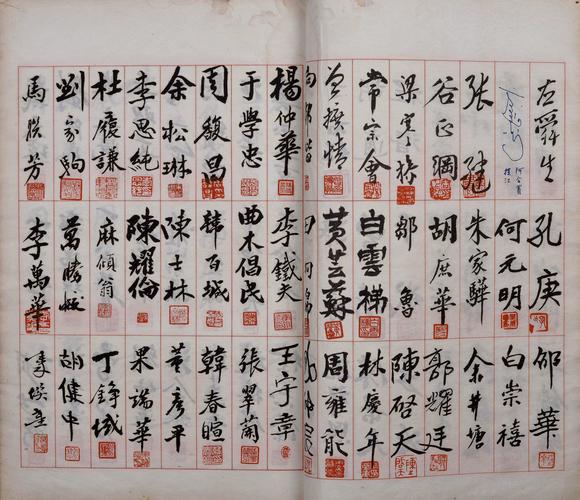 左舜生
孔庚
邵華
何元明
白崇禧
張繼
朱家驊
余井塘
谷正綱
胡庶華
郭耀廷
梁寒操
鄒魯
陳啓天
常宗會
白雲梯
林慶年
曾擴情
黃芸蘇
周雍能
楊仲華
李鐵夫
王宇章
于學忠
曲木倡民
張翠蘭
周馥昌
百城
韓春暄
余松琳
陳士林
彥平
李思純
陳耀倫
果端華
杜履謙
麻傾翁
丁錚域
劉家駒
萬勝
胡健中
馬 芳
李萬華